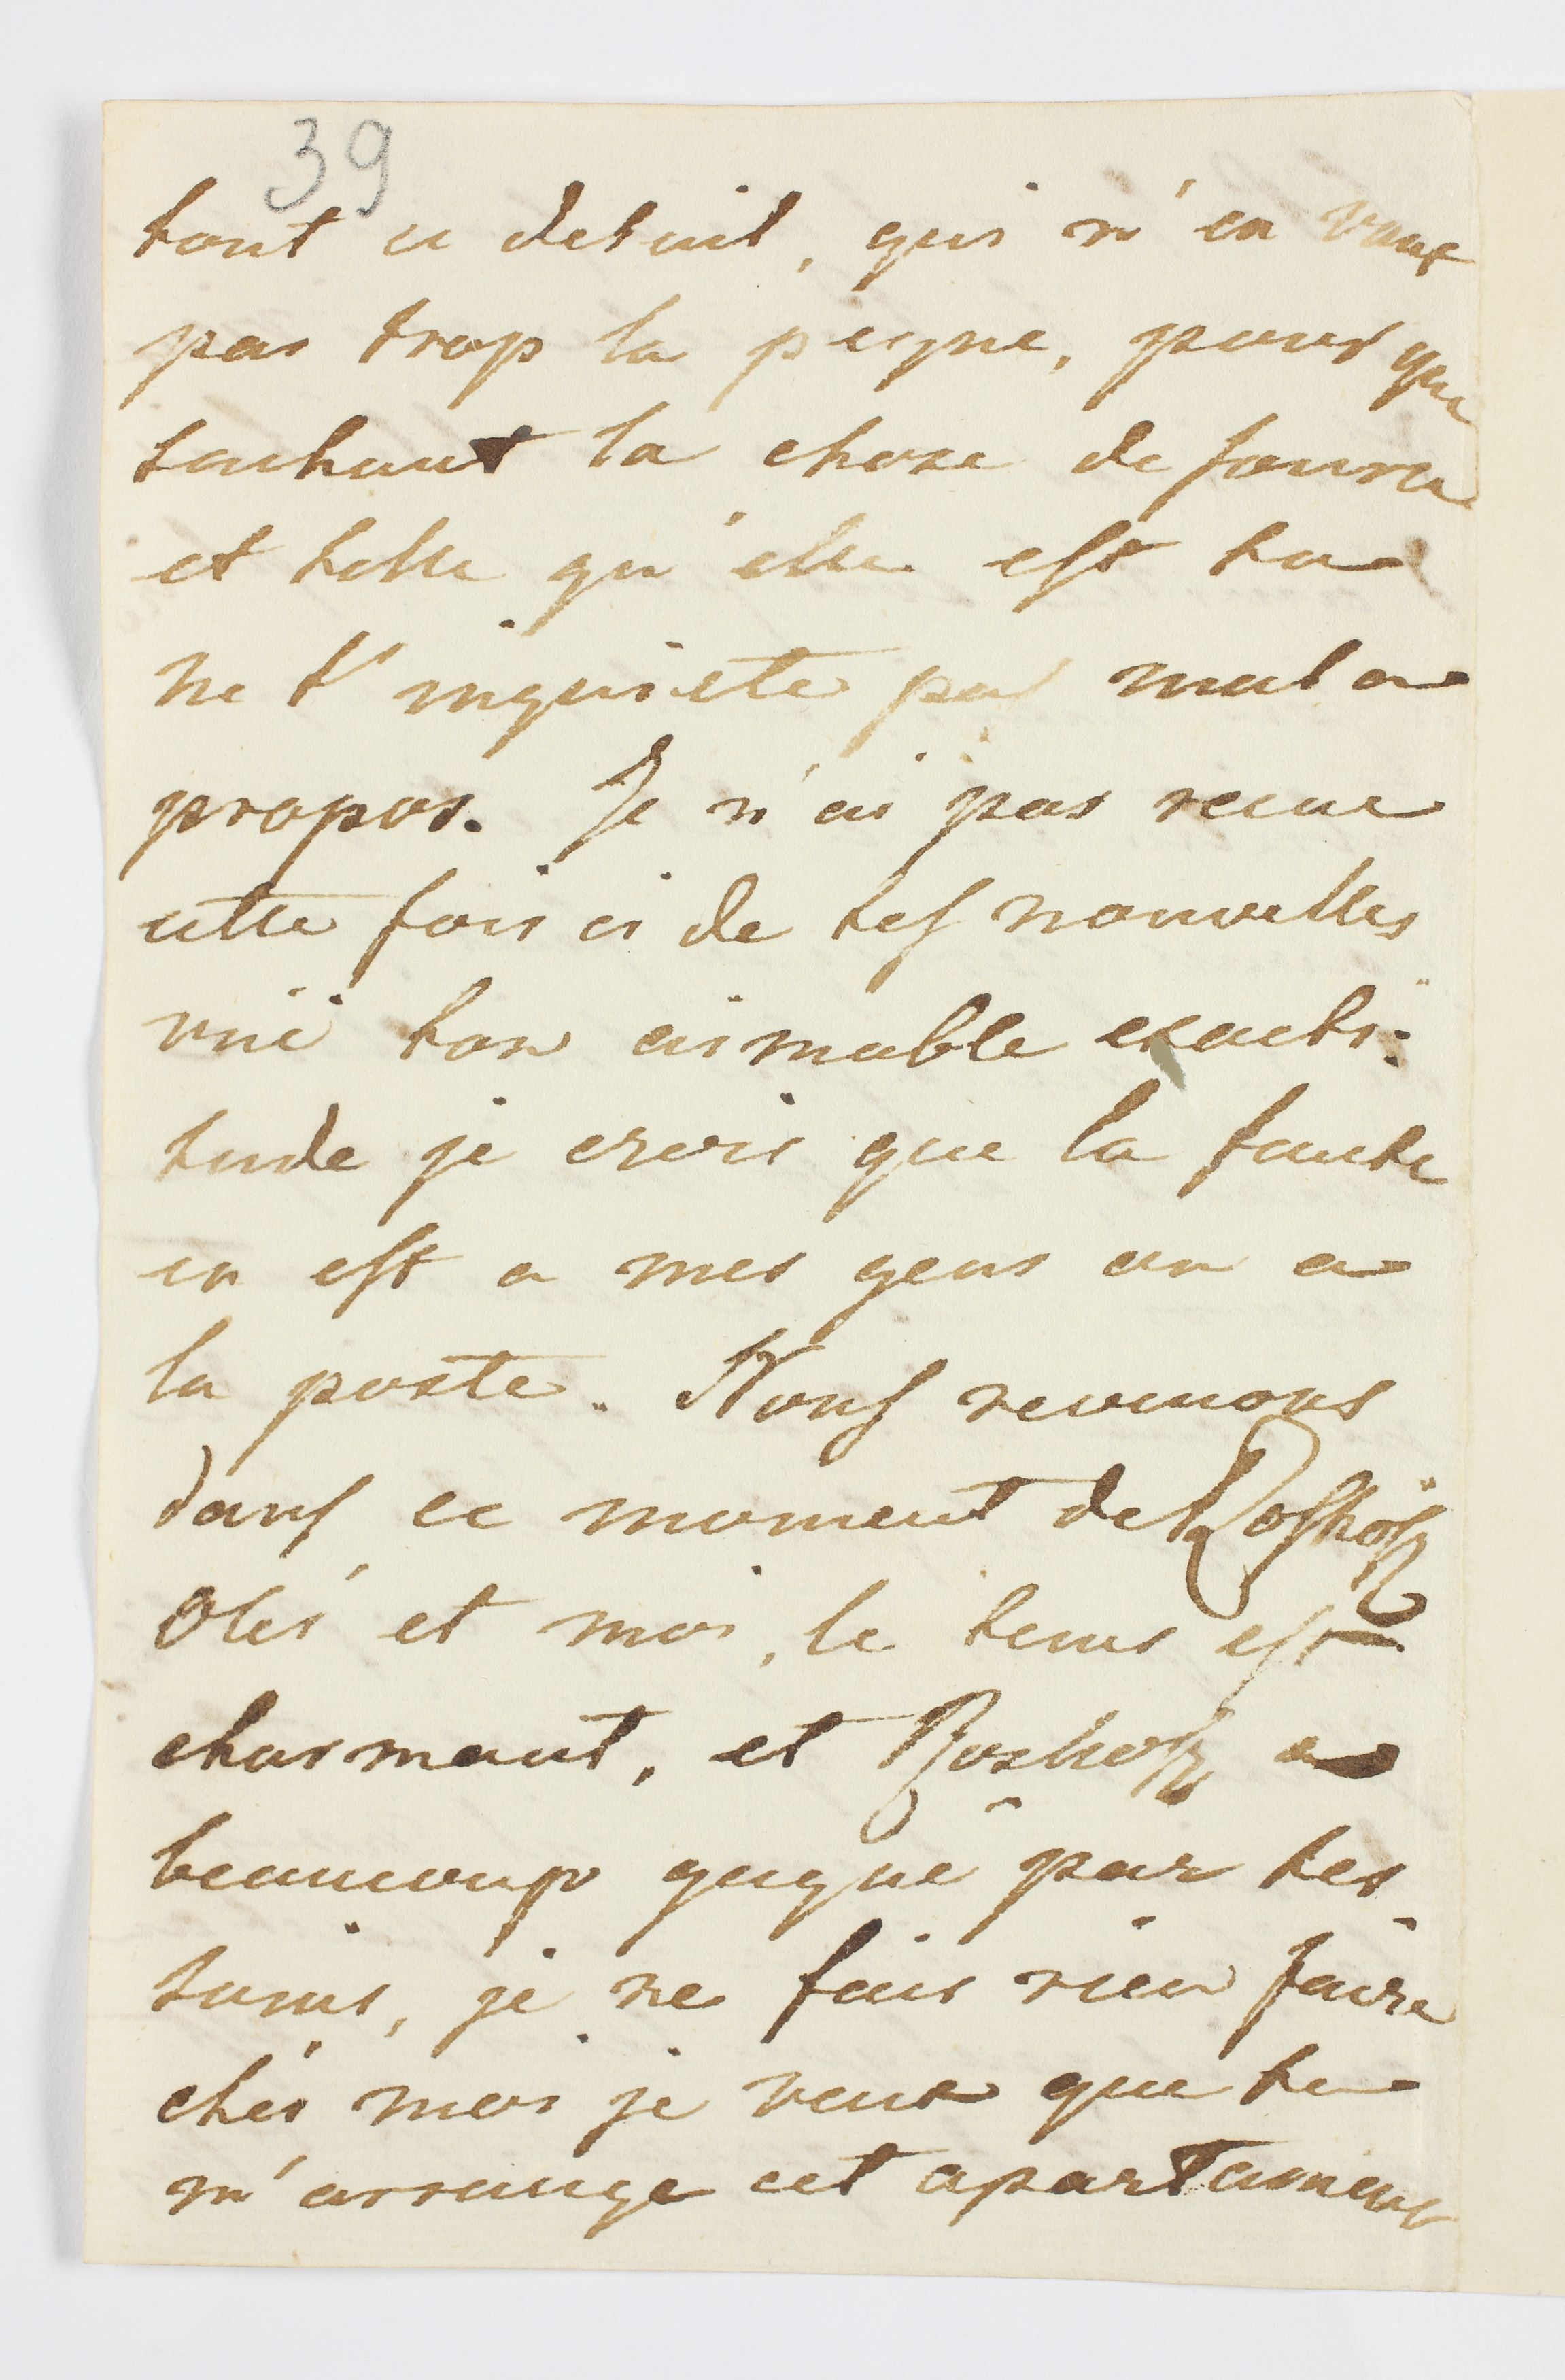 39
tout ce detail, qui n'en vaut
pas trop la peigne, pour que
sachant la chose de source
et telle qu'elle est tu
ne t'inquiete pas mal a
propos. Je n'ai pas recue
cette fois ci de tes nouvelles
vüe ton aimable exacti-
tude je crois que la faute
en est a mes gens ou a
la poste. Nous revenons
dans ce moment de Roshoff
Olès et moi, le tems est
charmant, et Roshoff a
beaucoup gagné par tes
soins, je ne fais rien faire
chés moi je veux que tu
m'arrange cet apartament